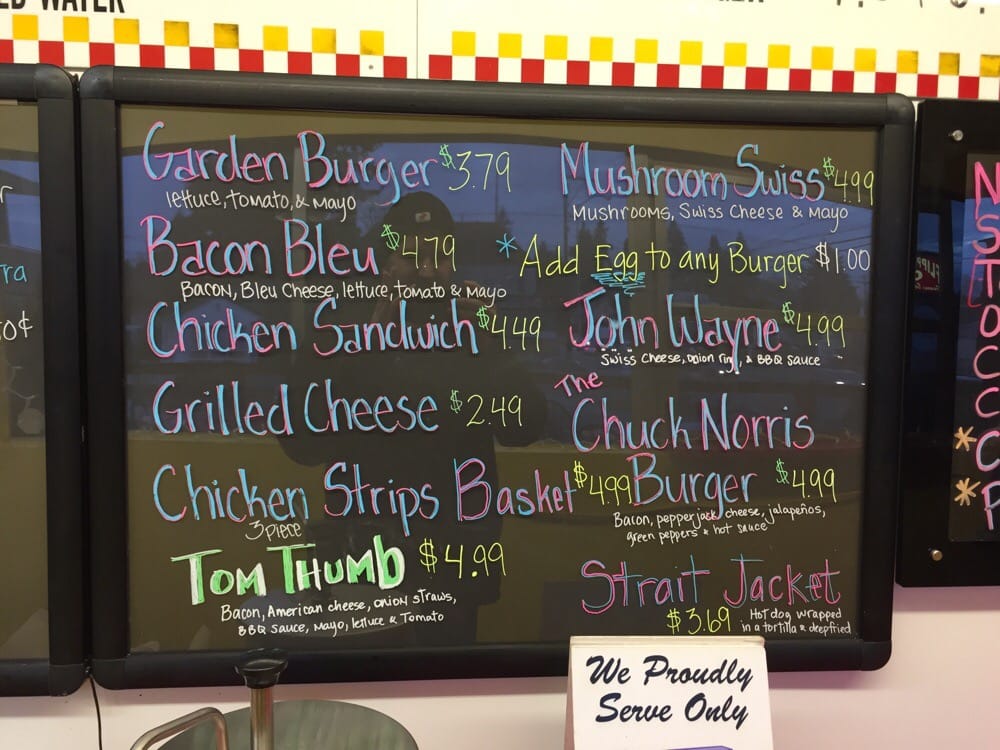 WATER
Garden Burger $3.79
lettuce, tomato, & Mayo
Bacon Bleu $4.79
Bacon, Bleu Cheese, lettuce, tomato & Mayo
Chicken Sandwich $4.49
Grilled Cheese $2.49
Chicken Strips Basket $4.99
3 piece
Tom Thumb $4.99
Bacon, American cheese, onion straws,
BBQ sauce, mayo, lettuce & Tomato
Mushroom Swiss $4.99
Mushrooms, Swiss Cheese & Mayo
* Add Egg to any Burger $1.00
John Wayne $4.99
Swiss cheese, onion ring, & BBQ sauce
The
Chuck Norris
Burger $4.99
Bacon, pepperjack cheese, jalapeños,
green peppers & hot sauce
Strait Jacket
$3.69 Hot dog wrapped
in a tortilla & deepfried
We Proudly
Serve Only